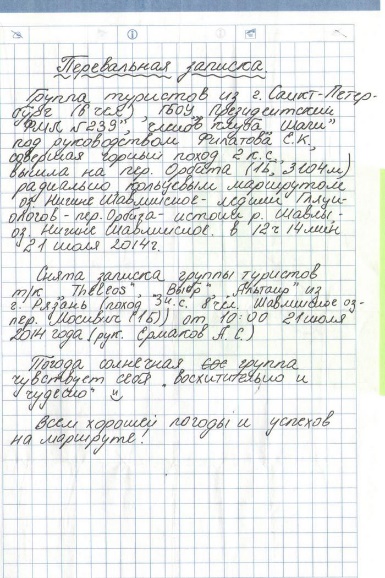 Перевальная записка.
Группа туристов из г. Санкт-Петер-
бург (6 чел), ГБОУ "Президентский
ФМЛ №239", членов клуба "Шаги"
под руководством Филатова С.К.,
совершая горный поход 2 к.с.,
вышла на пер. Орбита (1Б, 3104м)
радиально кольцевым маршрутом
оз. Нижнее Шавлинское - ледник
- пер. Орбита - истоки р. Шавлы -
оз. Нижнее Шавлинское. в 12ч 14мин
21 июля 2014г.
Снята записка группы туристов
т/к "Альтаир" из
г. Рязань (поход 3 к.с. 8 чел, Шавлинское оз-
пер. (1Б)) от 10:00 21 июля
2014 года (рук. Ермаков А.С.)
Погода солнечная группа
чувствует себя "восхитительно и
чудесно"
Всем хорошей погоды и успехов
на маршруте!